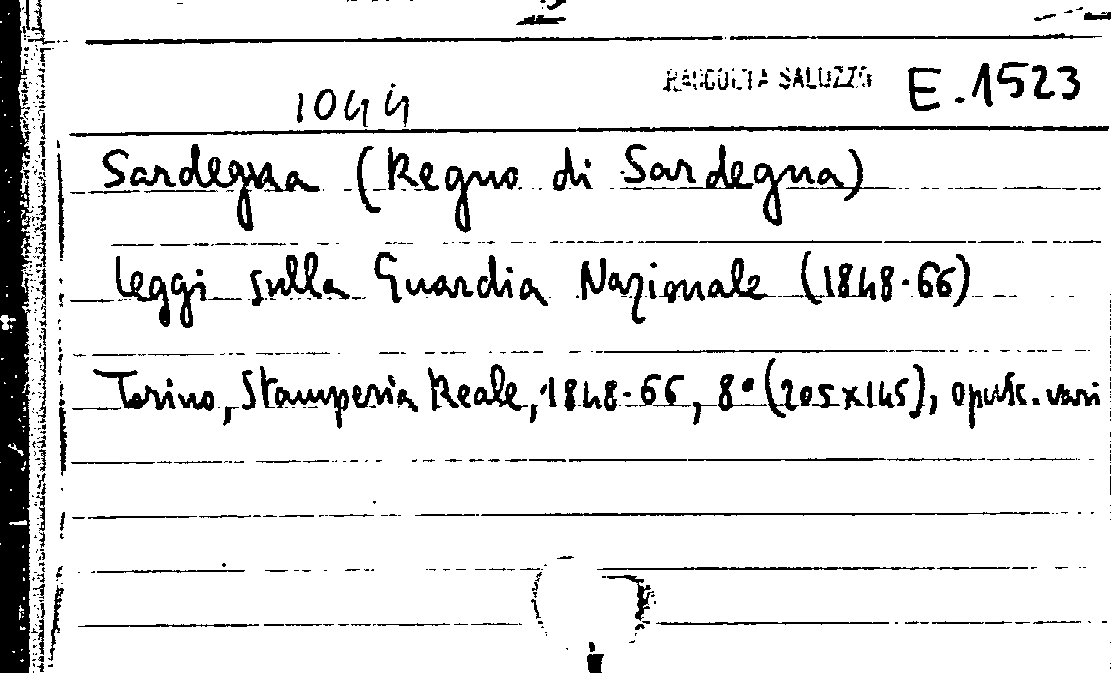 RACCOLTA SALUZZO E.1523
1044
Sardegna (Regno di Sardegna)
Leggi sulla Guardia Nazionale (1848-66)
Torino, Stamperia Reale, 1848-66, 8° (205x145), opusc. vari